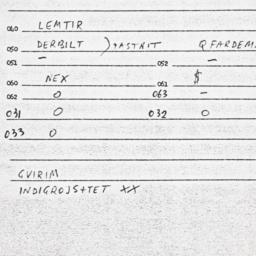 060 LEMTIR
050 DERBILT )+ASTNIT QFARDEM.
051 — 052 —
060 NEX 061 $
062 0 063 —
031 0 032 0
033 0
GVIRIM
INDIGROJS+TET XX